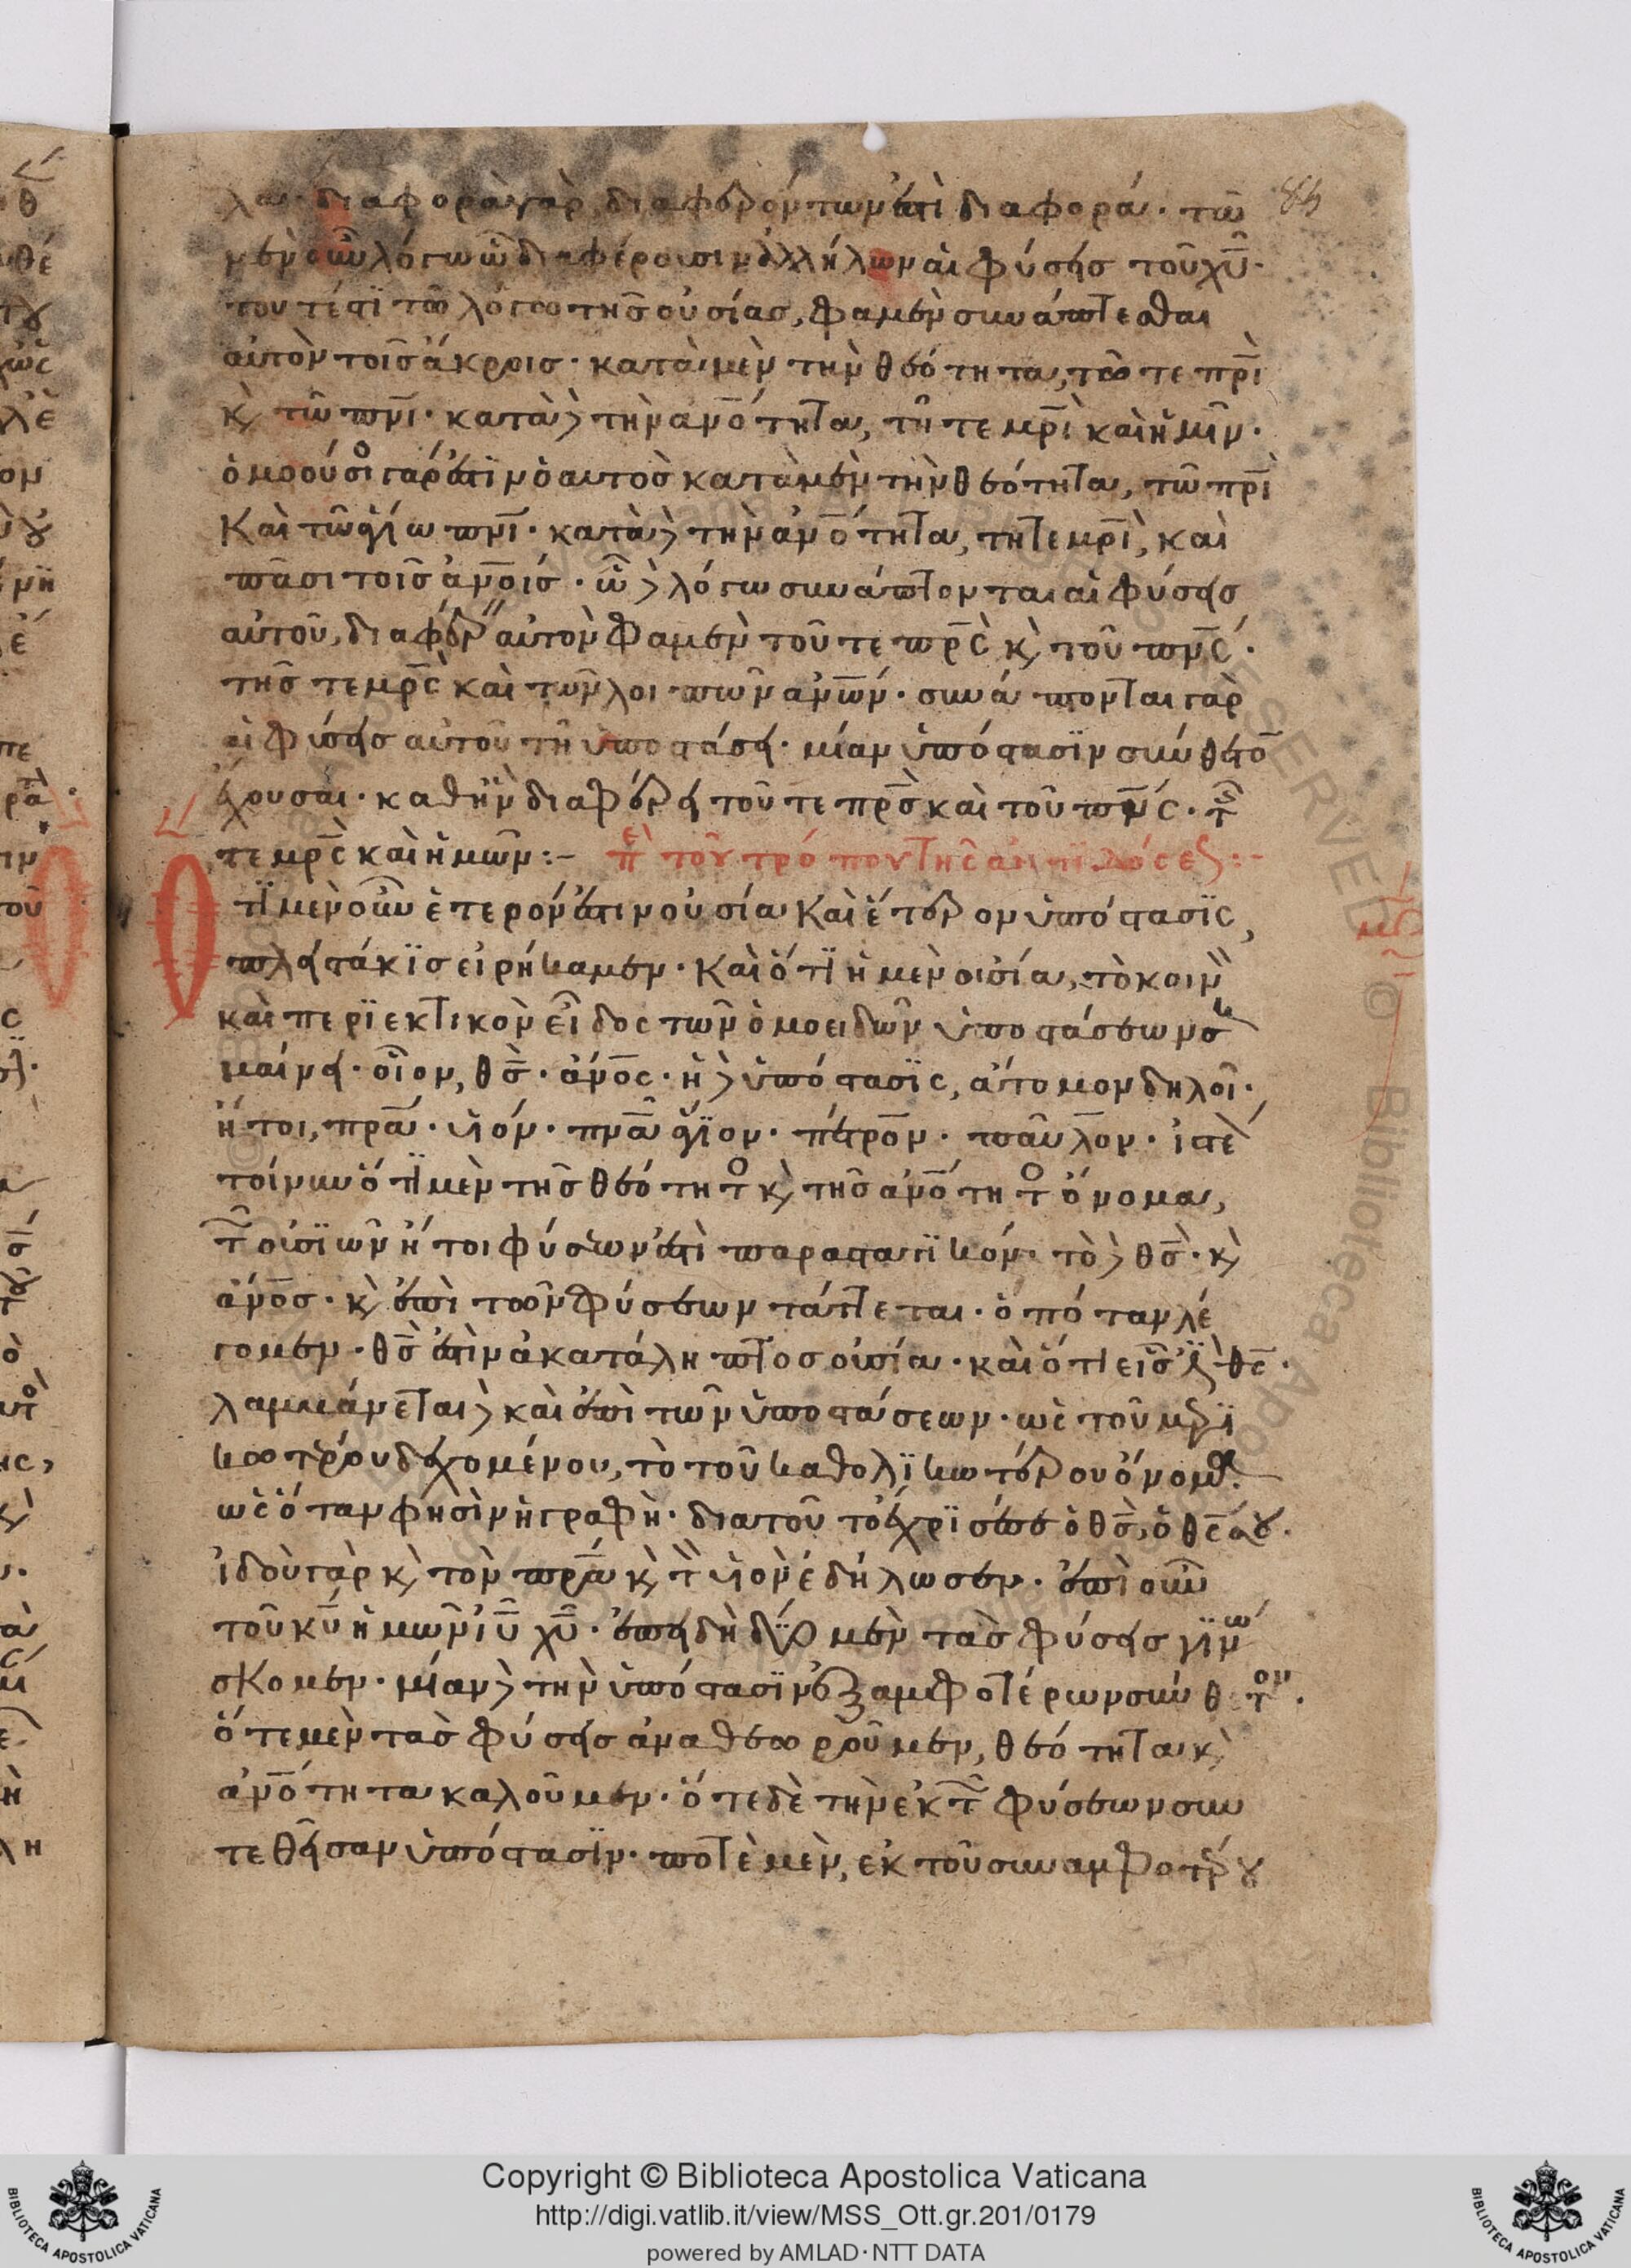 λα· διαφορὰ γὰρ, διαφερόντων ἐστὶ διαφορά· τῶ
μὲν οὖν λόγω ὧ διαφέρουσιν ἀλλήλων αἱ φύσεις τοῦ χ̅υ̅·
τουτέστι τῶ λόγω τῆς οὐσίας, φαμὲν συνάπτεσθαι
αὐτὸν τοῖς ἄκροις· κατὰ μὲν τὴν θεότητα, τῶ τε π̅ρ̅ὶ
κ̀ τῶ π̅ν̅ι· κατὰ δὲ τὴν α̅ν̅ότητα, τῆ τε μ̅ρ̅ὶ καὶ ἡμῖν·
ὁμοούσιος γάρ ἐστιν ὁ αὐτὸς κατὰ μὲν τὴν θεότητα, τῶ π̅ρ̅ὶ
Καὶ τῶ ἁγίω π̅ν̅ι· κατὰ δὲ τὴν α̅ν̅ότητα, τῆ τε μ̅ρ̅ὶ, καὶ
πᾶσι τοῖς α̅ν̅οις· ὧ δὲ λόγω συνάπτονται αἱ φύσεις
αὐτοῦ, διαφέρειν αὐτὸν φαμὲν τοῦ τε π̅ρ̅ς κ̀ τοῦ π̅ν̅ς·
τῆς τε μ̅ρ̅ς καὶ τῶν λοιπῶν α̅ν̅ων· συνάπτονται γὰρ
αἱ φύσεις αὐτοῦ τῆ ὑποστάσει· μίαν ὑπόστασιν σύνθετον
ἔχουσαι· καθ' ἣν διαφέρει τοῦ τε π̅ρ̅ς καὶ τοῦ π̅ν̅ς· τῆς
τε μ̅ρ̅ς καὶ ἡμῶν:– περὶ τοῦ τρόπου τῆς ἀντιδόσεως:–
Ὅτι μὲν οὖν ἕτερόν ἐστιν οὐσία Καὶ ἕτερον ὑπόστασις,
πλειστάκις εἰρήκαμεν· Καὶ ὅτι ἡ μὲν οὐσία, τὸ κοινὸν
καὶ περιεκτικὸν εἶδος τῶν ὁμοειδῶν ὑποστάσεων ση
μαίνει· οἷον, θ̅ς̅· α̅ν̅ος· ἡ δὲ ὑπόστασις, ἄτομον δηλοῖ·
ἤτοι, π̅ρ̅α· υἱόν· π̅ν̅α ἅγιον· πέτρον· παῦλον· ἰστέον
τοίνυν ὅτι μὲν τῆς θεότητος κ̀ τῆς α̅ν̅ότητος ὄνομα,
τῶν οὐσιῶν ἤτοι φύσεων ἐστὶ παραστατικόν· τὸ δὲ θ̅ς̅· κ̀
α̅ν̅ος· κ̀ ἐπὶ τῶν φύσεων τάττεται· ὁπόταν λέ
γομεν· θ̅ς̅ ἐστὶν ἀκατάληπτος οὐσία· καὶ ὅτι εἷς ἐστὶ θ̅ς̅·
λαμβάνεται δὲ καὶ ἐπὶ τῶν ὑποστάσεων· ὡς τοῦ μερι
κωτέρου δεχομένου, τὸ τοῦ καθολικωτέρου ὄνομα·
ὡς ὅταν φησὶν ἡ γραφὴ· διατοῦτο ἔχρισέ σε ὁ θ̅ς̅, ὁ θ̅ς̅ σου·
ἰδοὺ γὰρ κ̀ τὸν π̅ρ̅α κ̀ τὸν υἱὸν ἐδήλωσεν· ἐπὶ οὖν
τοῦ κ̅υ̅ ἡμῶν ι̅υ̅ χ̅υ̅· ἐπειδὴ δύο μὲν τὰς φύσεις γινώ
σκομεν· μίαν δὲ τὴν ὑπόστασιν ἐξ ἀμφοτέρων σύνθετον·
ὅτε μὲν τὰς φύσεις ἀναθεωροῦμεν, θεότητα κ̀
α̅ν̅ότητα καλοῦμεν· ὅτε δὲ τὴν ἐκ τῶν φύσεων συν
τεθεῖσαν ὑπόστασιν· ποτὲ μὲν, ἐκ τοῦ συναμφοτέρου
Copyright © Biblioteca Apostolica Vaticana
http://digi.vatlib.it/view/MSS_Ott.gr.201/0179
powered by AMLAD·NTT DATA